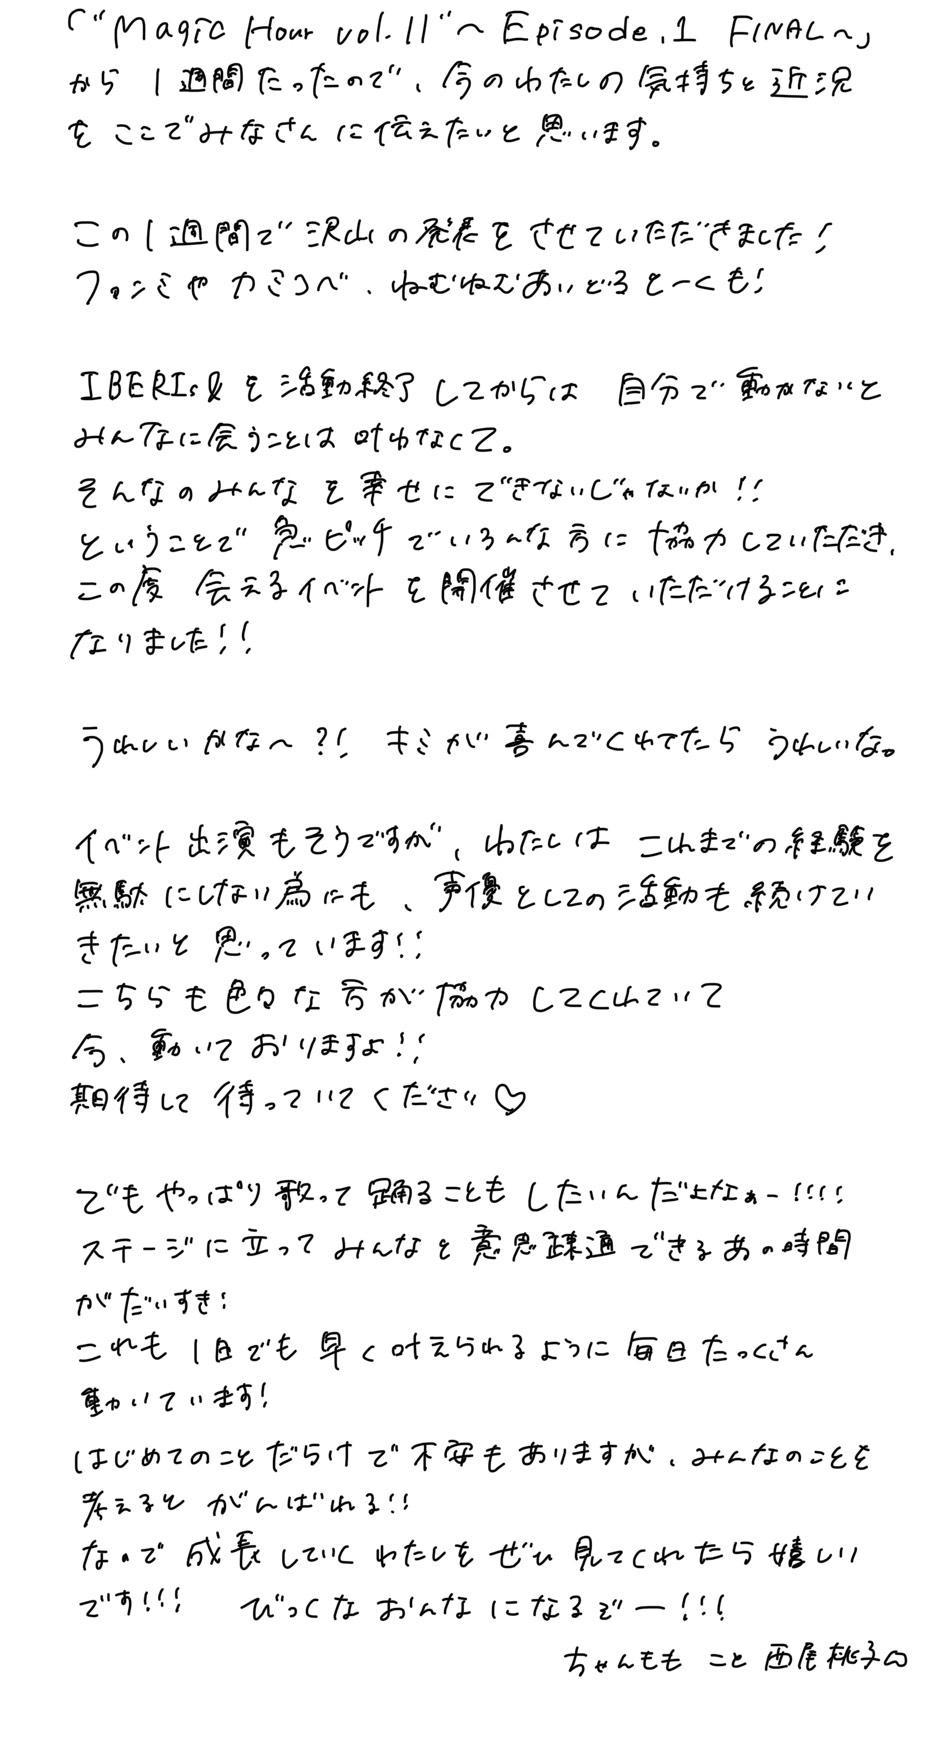 「"Magic Hour vol.11"〜Episode.1 FINAL〜」
から1週間たったので、今のわたしの気持ちと近況
をここでみなさんに伝えたいと思います。
この1週間で沢山の発表をさせていただきました!
ファンミやカミコベ、ねむねむあいどるとーくも!
IBERIs&を活動終了してからは 自分で動かないと
みんなに会うことは叶わなくて。
そんなのみんなを幸せにできないじゃないか!!
ということで急ピッチでいろんな方に協力していただき、
この度 会えるイベントを開催させていただけることに
なりました!!
うれしいかな〜?! キミが喜んでくれてたらうれしいな。
イベント出演もそうですが、わたしはこれまでの経験を
無駄にしない為にも、声優としての活動も続けてい
きたいと思っています!!
こちらも色々な方が協力してくれていて
今、動いておりますよ!!
期待して待っていてください♡
でもやっぱり歌って踊ることもしたいんだよなぁー!!!!
ステージに立ってみんなと意思疎通できるあの時間
がだいすき!
これも1日でも早く叶えられるように毎日たっくさん
動いています!
はじめてのことだらけで不安もありますが、みんなのことを
考えるとがんばれる!!
なので成長していくわたしをぜひ見てくれたら嬉しい
です!!! びっくなおんなになるぞー!!!
ちゃんもも こと 西尾桃子